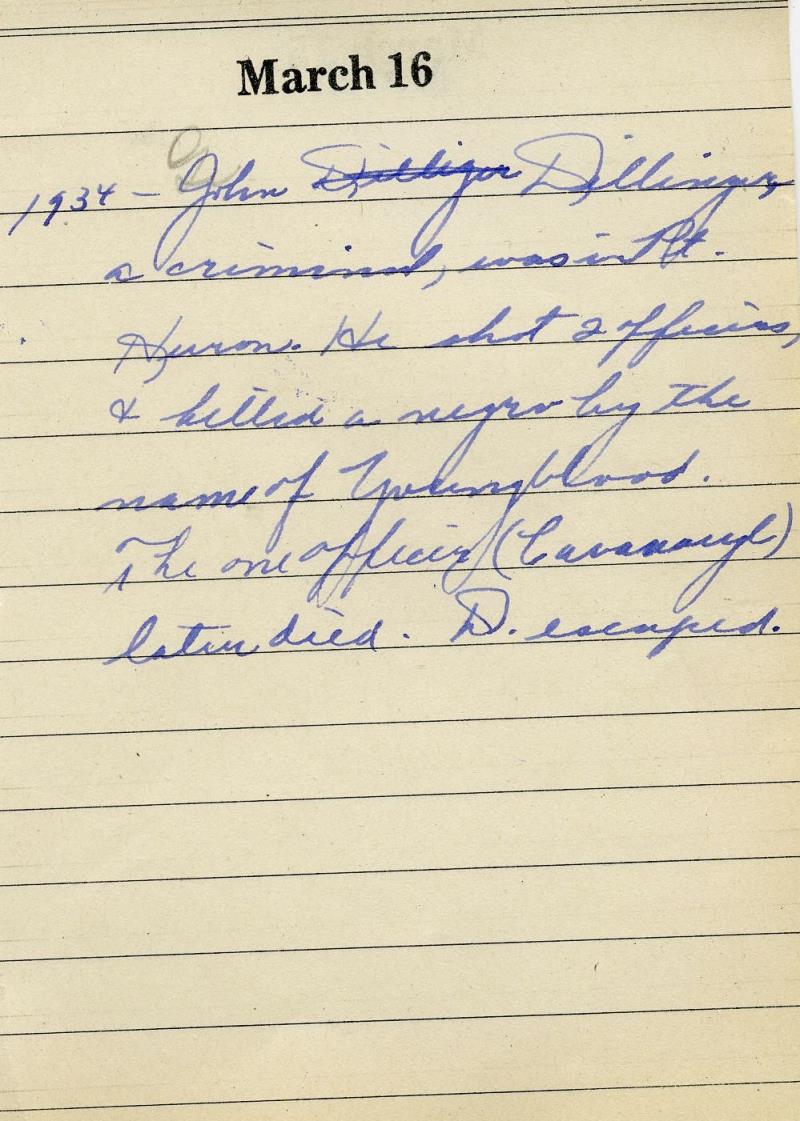 March 16
1934 - John Dilliger Dillinger,
a criminal, was in Pt.
Huron. He shot 2 officers,
& killed a negro by the
name of Youngblood.
The one officer (Cavanaugh)
later died. D. escaped.